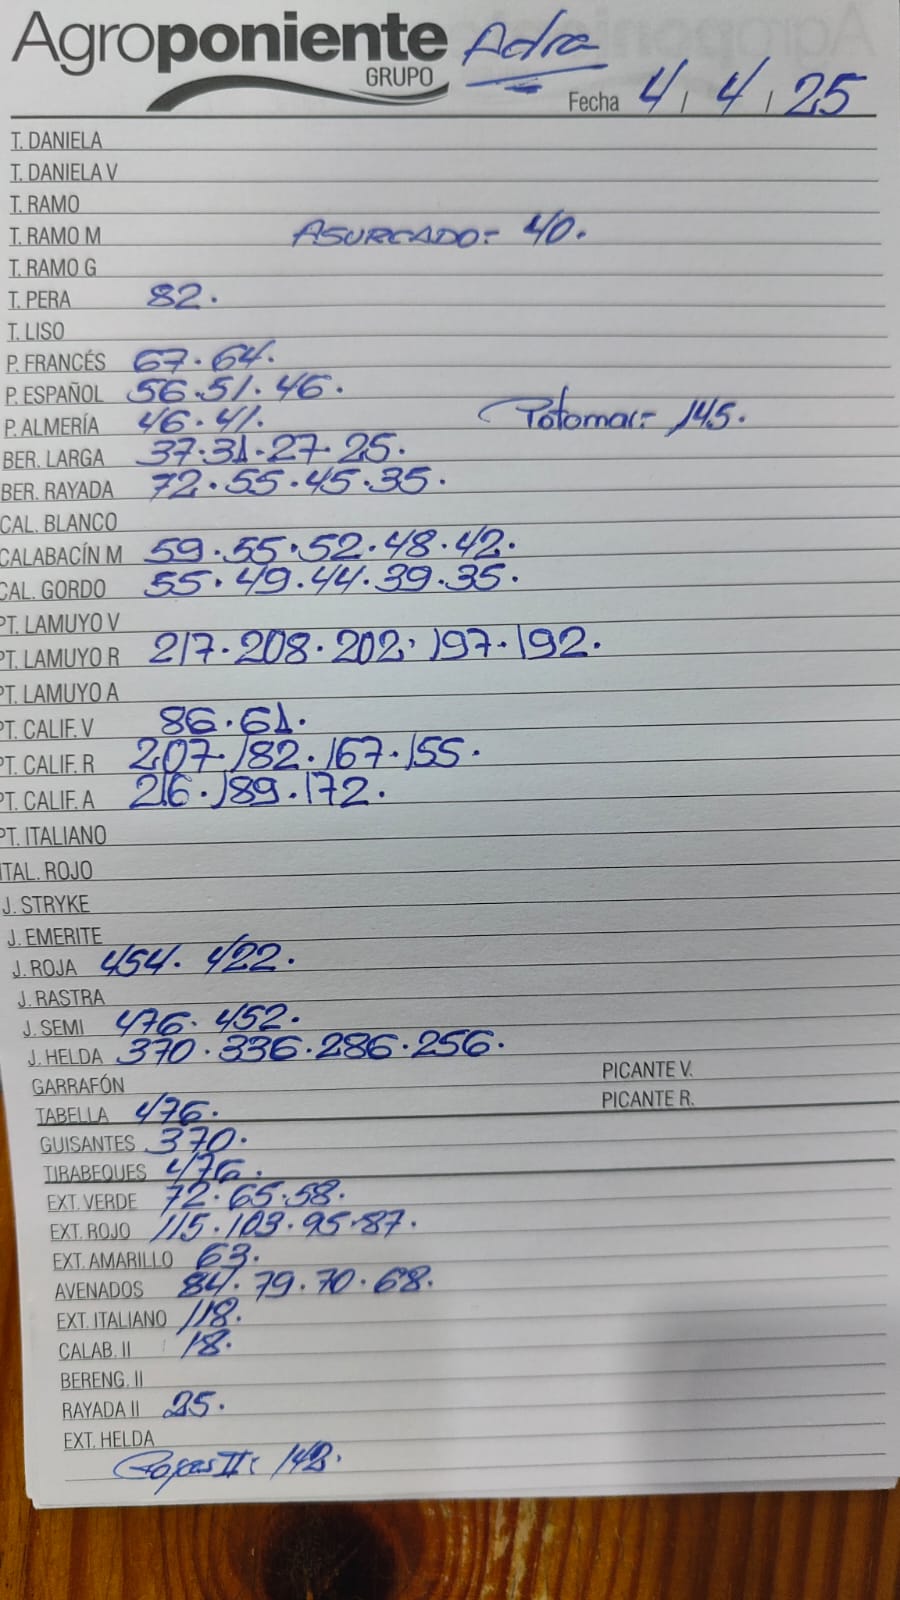 Agroponiente Adra
GRUPO
Fecha 4 / 4 / 25
T. DANIELA
T. DANIELA V
T. RAMO
T. RAMO M ASURCADO= 40.
T. RAMO G
T. PERA 82.
T. LISO
P. FRANCÉS 67. 64.
P. ESPAÑOL 56. 51. 46.
P. ALMERÍA 46. 41. Potomac= 145.
BER. LARGA 37. 31. 27. 25.
BER. RAYADA 72. 55. 45. 35.
CAL. BLANCO
CALABACÍN M 59. 55. 52. 48. 42.
CAL. GORDO 55. 49. 44. 39. 35.
PT. LAMUYO V
PT. LAMUYO R 217. 208. 202. 197. 192.
PT. LAMUYO A
PT. CALIF. V 86. 61.
PT. CALIF. R 207. 182. 167. 155.
PT. CALIF. A 216. 189. 172.
PT. ITALIANO
ITAL. ROJO
J. STRYKE
J. EMERITE
J. ROJA 454. 422.
J. RASTRA
J. SEMI 476. 452.
J. HELDA 370. 336. 286. 256.
GARRAFÓN PICANTE V.
TABELLA 476. PICANTE R.
GUISANTES 370.
TIRABEQUES 476.
EXT. VERDE 72. 65. 58.
EXT. ROJO 115. 103. 95. 87.
EXT. AMARILLO 63.
AVENADOS 84. 79. 70. 68.
EXT. ITALIANO 118.
CALAB. II 18.
BERENG. II
RAYADA II 25.
EXT. HELDA
Rojas II: 142.